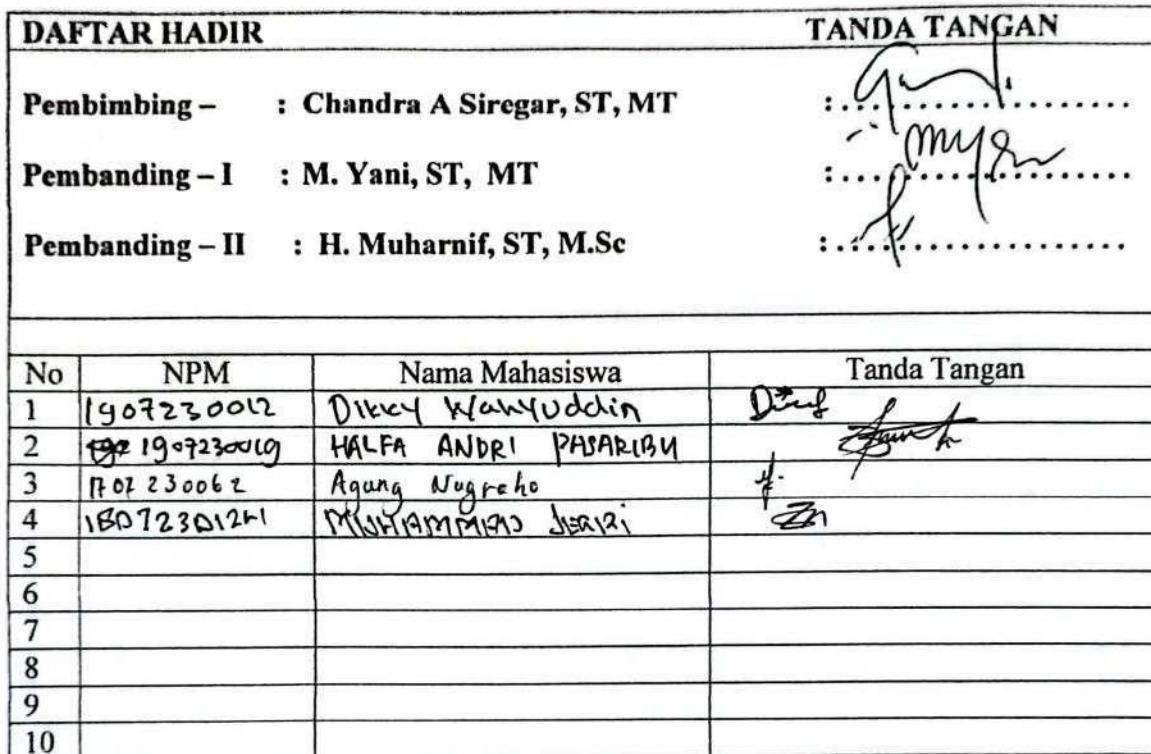 DAFTAR HADIR TANDA TANGAN
Pembimbing – : Chandra A Siregar, ST, MT :..................
Pembanding – I : M. Yani, ST, MT :..................
Pembanding – II : H. Muharnif, ST, M.Sc :..................
No NPM Nama Mahasiswa Tanda Tangan
1 1907230012 Dikky Wahyuddin
2 1907230019 HALFA ANDRI PASARIBU
3 1707230062 Agung Nugroho
4 MUHAMMAD
5
6
7
8
9
10